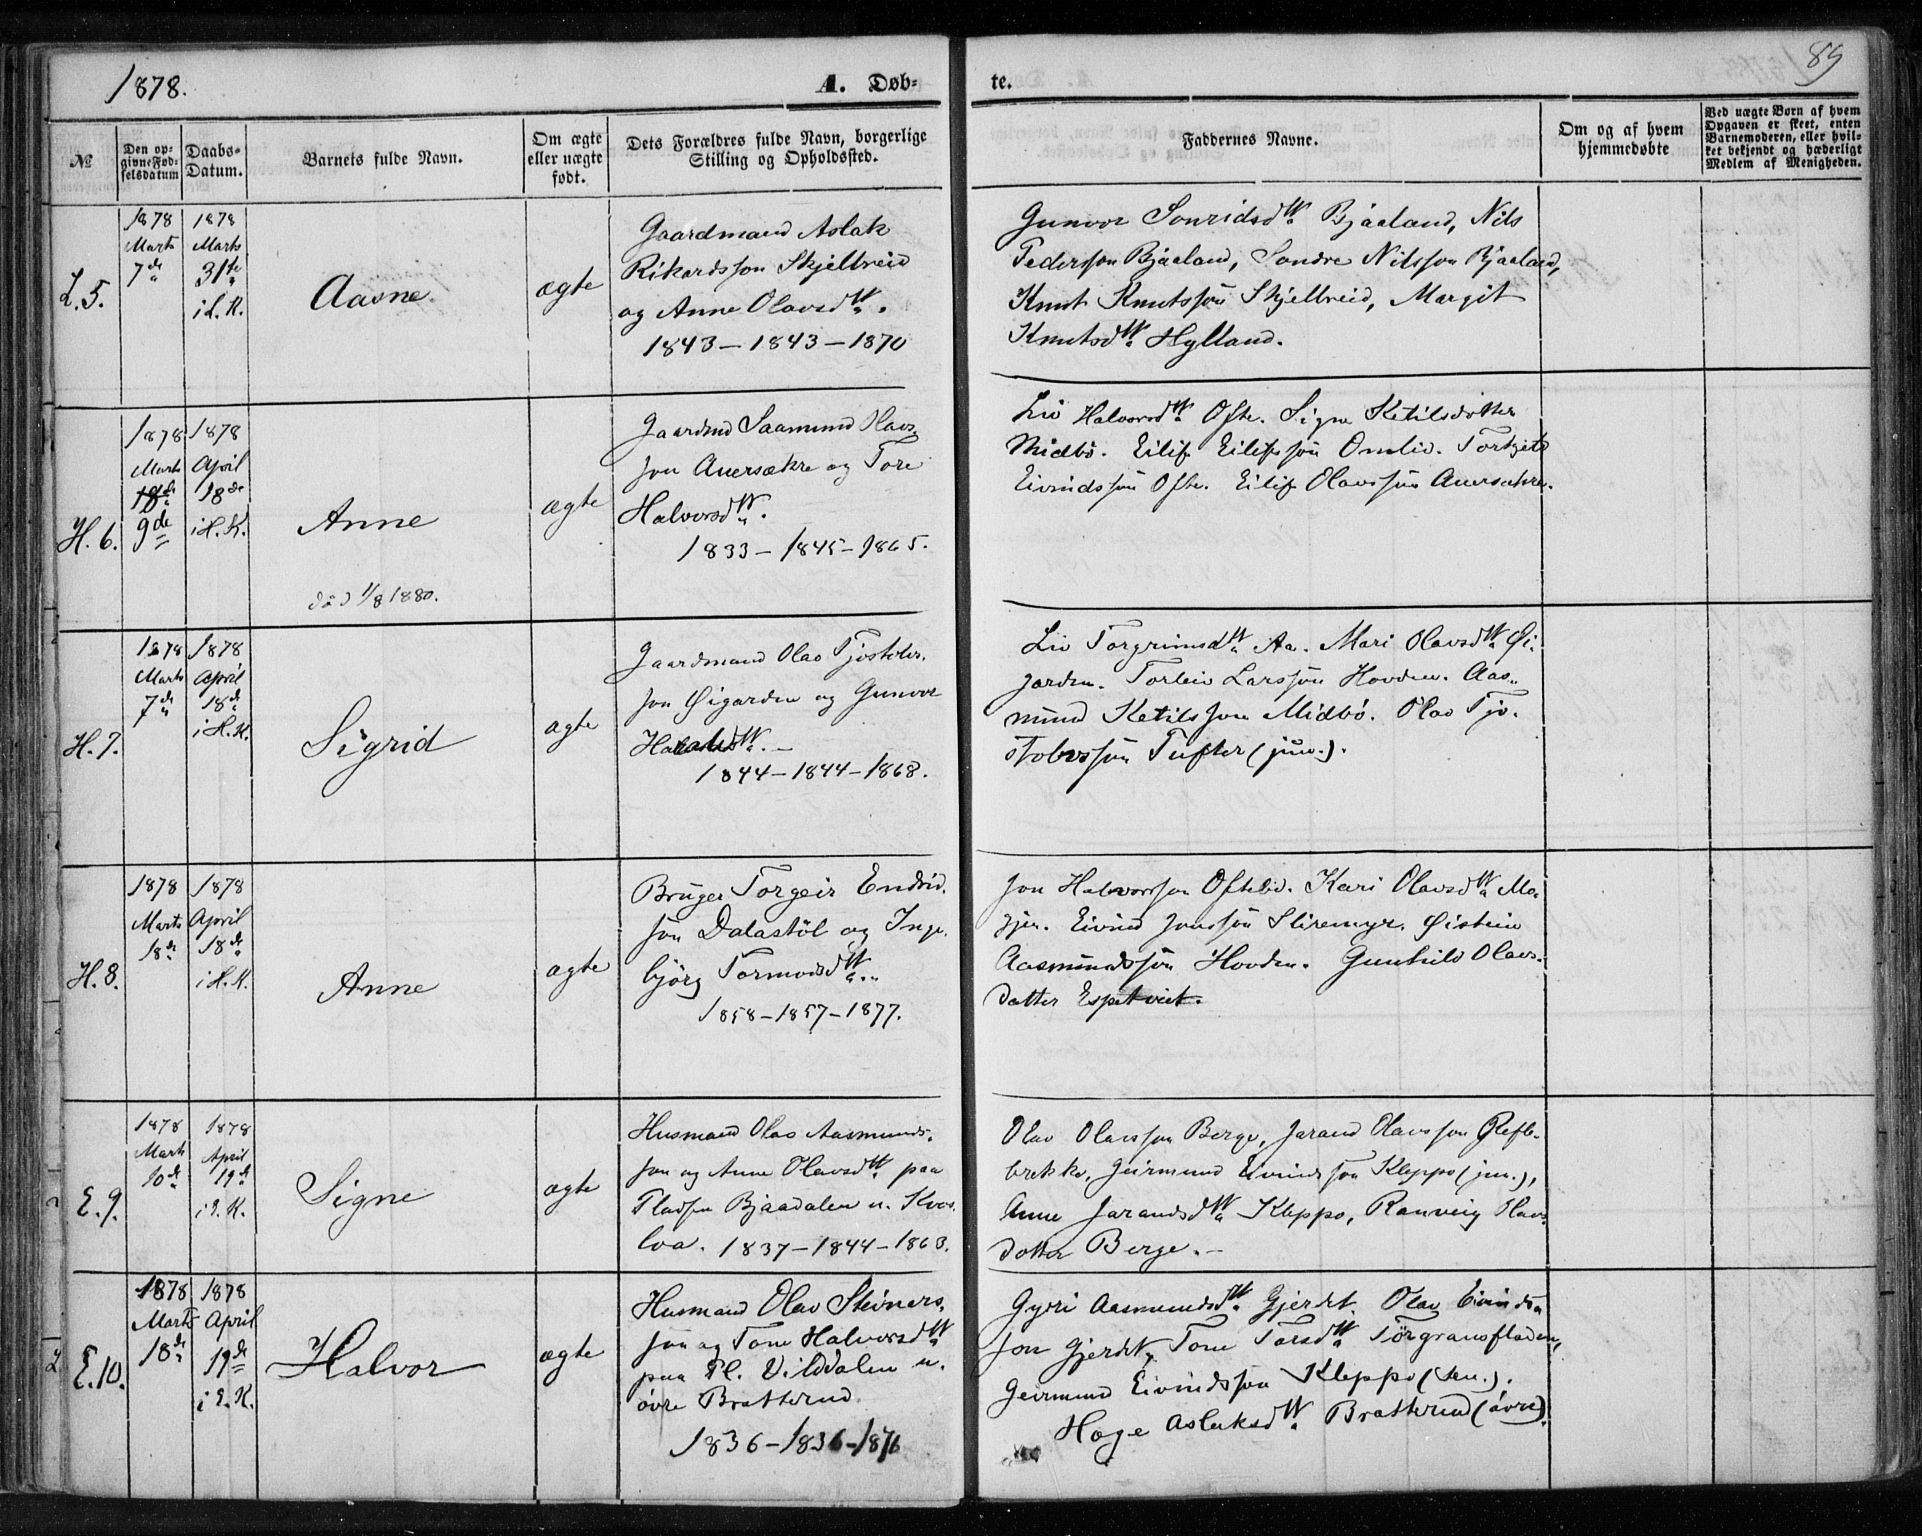 1878.
A. Døb-
te.
89
№
Den op-
givne Fød-
selsdatum
Daabs-
Datum.
Barnets fulde Navn.
Om ægte
eller uægte
født.
Dets Forældres fulde Navn, borgerlige
Stilling og Opholdssted.
Faddernes Navne.
Om og af hvem
hjemmedøbte
Ved uægte Børn af hvem
Opgaven er skeet, enten
Barnemoderen, eller hvil-
ket bekjendt og hæderligt
Medlem af Menigheden.
L. 5.
1878
Marts
7de
1878
Marts
31te
i L. K.
Aasne
ægte
Gaardmand Aslak
Rikardsson Skjelbreid
og Anne Olavsdtt.
1843 – 1843 – 1870
Gunvor Sonridsdtt Bjaaland, Nils
Pederson Bjaaland, Sondre Nilsson Bjaaland,
Knut Knutsson Skjelbreid, Margit
Knutsdtt Hylland.
H. 6.
1878
Marts
9de
1878
April
18de
i H. K.
Anne
død 1/8 1880.
ægte
Gaardmd Saamund Olavs-
son Auersækre og Tore
Halvorsdtt.
1833 – 1845 – 1865.
Liv Halvorsdtt Ofte. Signe Ketilsdotter
Midbö. Eilif Eilifsson Omlid. Torkjel
Eivindsson Ofte. Eilif Olavsson Auersækre.
H. 7.
1878
Marts
7de
1878
April
18de
i H. K.
Sigrid
ægte
Gaardmand Olav Tjostolvs-
son Øigarden og Gunvor
1844 – 1844 – 1868.
Liv Torgrimsdtt Aa. Mari Olavsdtt Øi-
garden. Torleiv Larsson Hovden. Aas-
mund Ketilsson Midbö. Olav Tjo-
stolvsson Tufter (jun.).
H. 8.
1878
Marts
18de
1878
April
18de
i H. K.
Anne
ægte
Bruger Torgeir Endrid-
son Dalastöl og Inge-
björg Tormodsdtt.
1858 – 1857 – 1877.
Jon Halvorsson Oftelid. Kari Olavsdtt Mo-
gjen. Eivind Jonsson Stiremyr. Øistein
Aasmundsson Hovden. Gunhild Olavs-
dotter Espetveit.
E. 9.
1878
Marts
10de
1878
April
19de
i E. K.
Signe
ægte
Husmand Olav Aasmunds-
son og Anne Olavsdtt paa
Pladsen Bjaadalen u. Kvos-
loa. 1837 – 1844 – 1863.
Olav Olavsson Berge, Jarand Olavsson Refle-
brekke, Geirmund Eivindsson Kleppo (jun.),
Anne Jarandsdtt Kleppo, Ranveig Olavs-
dotter Berge. –
E. 10.
1878
Marts
18de
1878
April
19de
i E. K.
Halvor
ægte
Husmand Olav Steiners-
son og Tone Halvorsdtt
paa Pl. Vilddalen u.
övre Bratterud
1836 – 1836 – 1876
Gyri Aasmundsdtt Gjerdt. Olav Eivinds-
son Gjerdt, Tone Torsdtt Törgransfladen,
Geirmund Eivindsson Kleppo (sen.).
Hæge Aslaksdtt Bratterud (övre).